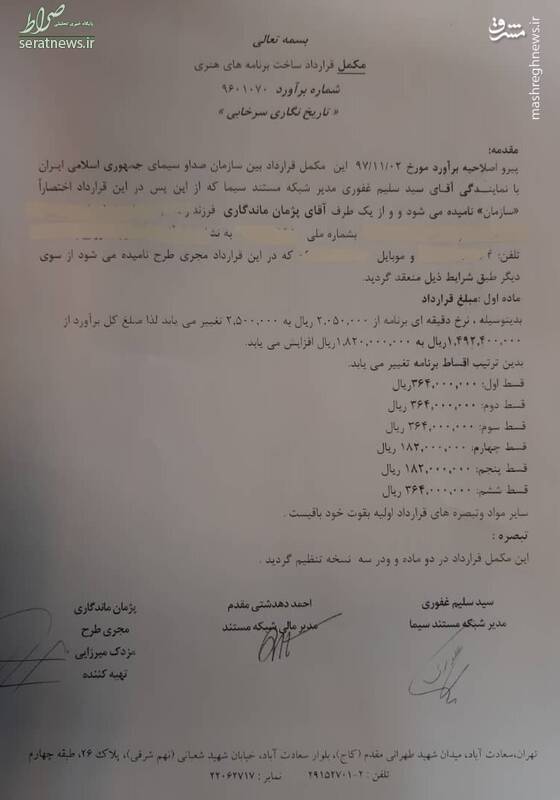 صراط
پایگاه خبری تحلیلی
seratnews.ir
مشرق
mashreghnews.ir
بسمه تعالی
مکمل قرارداد ساخت برنامه های هنری
شماره برآورد ۹۶۰۱۰۷۰
« تاریخ نگاری سرخابی »
مقدمه:
پیرو اصلاحیه برآورد مورخ ۹۷/۱۱/۰۲ این مکمل قرارداد بین سازمان صداو سیمای جمهوری اسلامی ایران
با نمایندگی آقای سید سلیم غفوری مدیر شبکه مستند سیما که از این پس در این قرارداد اختصاراً
«سازمان» نامیده می شود و و از یک طرف آقای پژمان ماندگاری فرزند
بشماره ملی به
تلفن: و موبایل که در این قرارداد مجری طرح نامیده می شود از سوی
دیگر طبق شرایط ذیل منعقد گردید.
ماده اول: مبلغ قرارداد
بدینوسیله ، نرخ دقیقه ای برنامه از ۲،۰۵۰،۰۰۰ ریال به ۲،۵۰۰،۰۰۰ تغییر می یابد لذا مبلغ کل برآورد از
۱،۴۹۲،۴۰۰،۰۰۰ریال به ۱،۸۲۰،۰۰۰،۰۰۰ریال افزایش می یابد.
بدین ترتیب اقساط برنامه تغییر می یابد.
قسط اول: ۳۶۴،۰۰۰،۰۰۰ریال
قسط دوم: ۳۶۴،۰۰۰،۰۰۰ ریال
قسط سوم: ۳۶۴،۰۰۰،۰۰۰ ریال
قسط چهارم: ۱۸۲،۰۰۰،۰۰۰ ریال
قسط پنجم: ۱۸۲،۰۰۰،۰۰۰ ریال
قسط ششم: ۳۶۴،۰۰۰،۰۰۰ ریال
سایر مواد وتبصره های قرارداد اولیه بقوت خود باقیست .
تبصره :
این مکمل قرارداد در دو ماده و ودر سه نسخه تنظیم گردید .
سید سلیم غفوری
مدیر شبکه مستند سیما
احمد دهدشتی مقدم
مدیر مالی شبکه مستند
پژمان ماندگاری
مجری طرح
مزدک میرزایی
تهیه کننده
تهران،سعادت آباد، میدان شهید طهرانی مقدم (کاج)، بلوار سعادت آباد، خیابان شهید شعبانی (نهم شرقی)، پلاک ۲۶، طبقه چهارم
تلفن : ۲-۲۹۱۵۲۷۰۱ نمابر : ۲۲۰۶۲۷۱۷